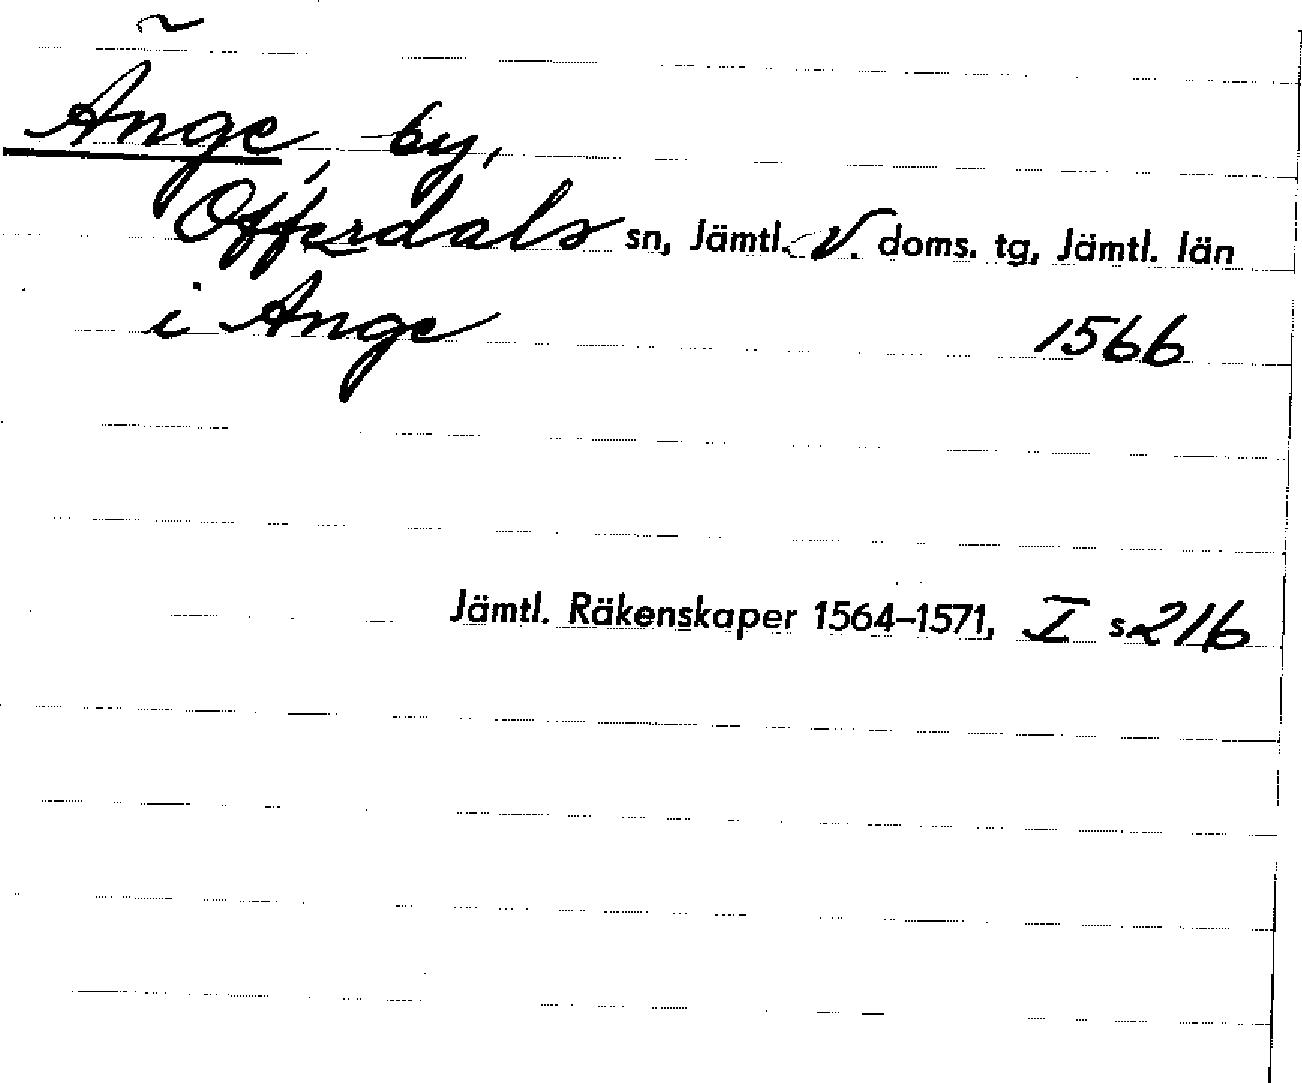 Ånge, by,
Offerdals sn, Jämtl. V. doms. tg, Jämtl. län
i Ange 1566
Jämtl. Räkenskaper 1564–1571, I s. 216